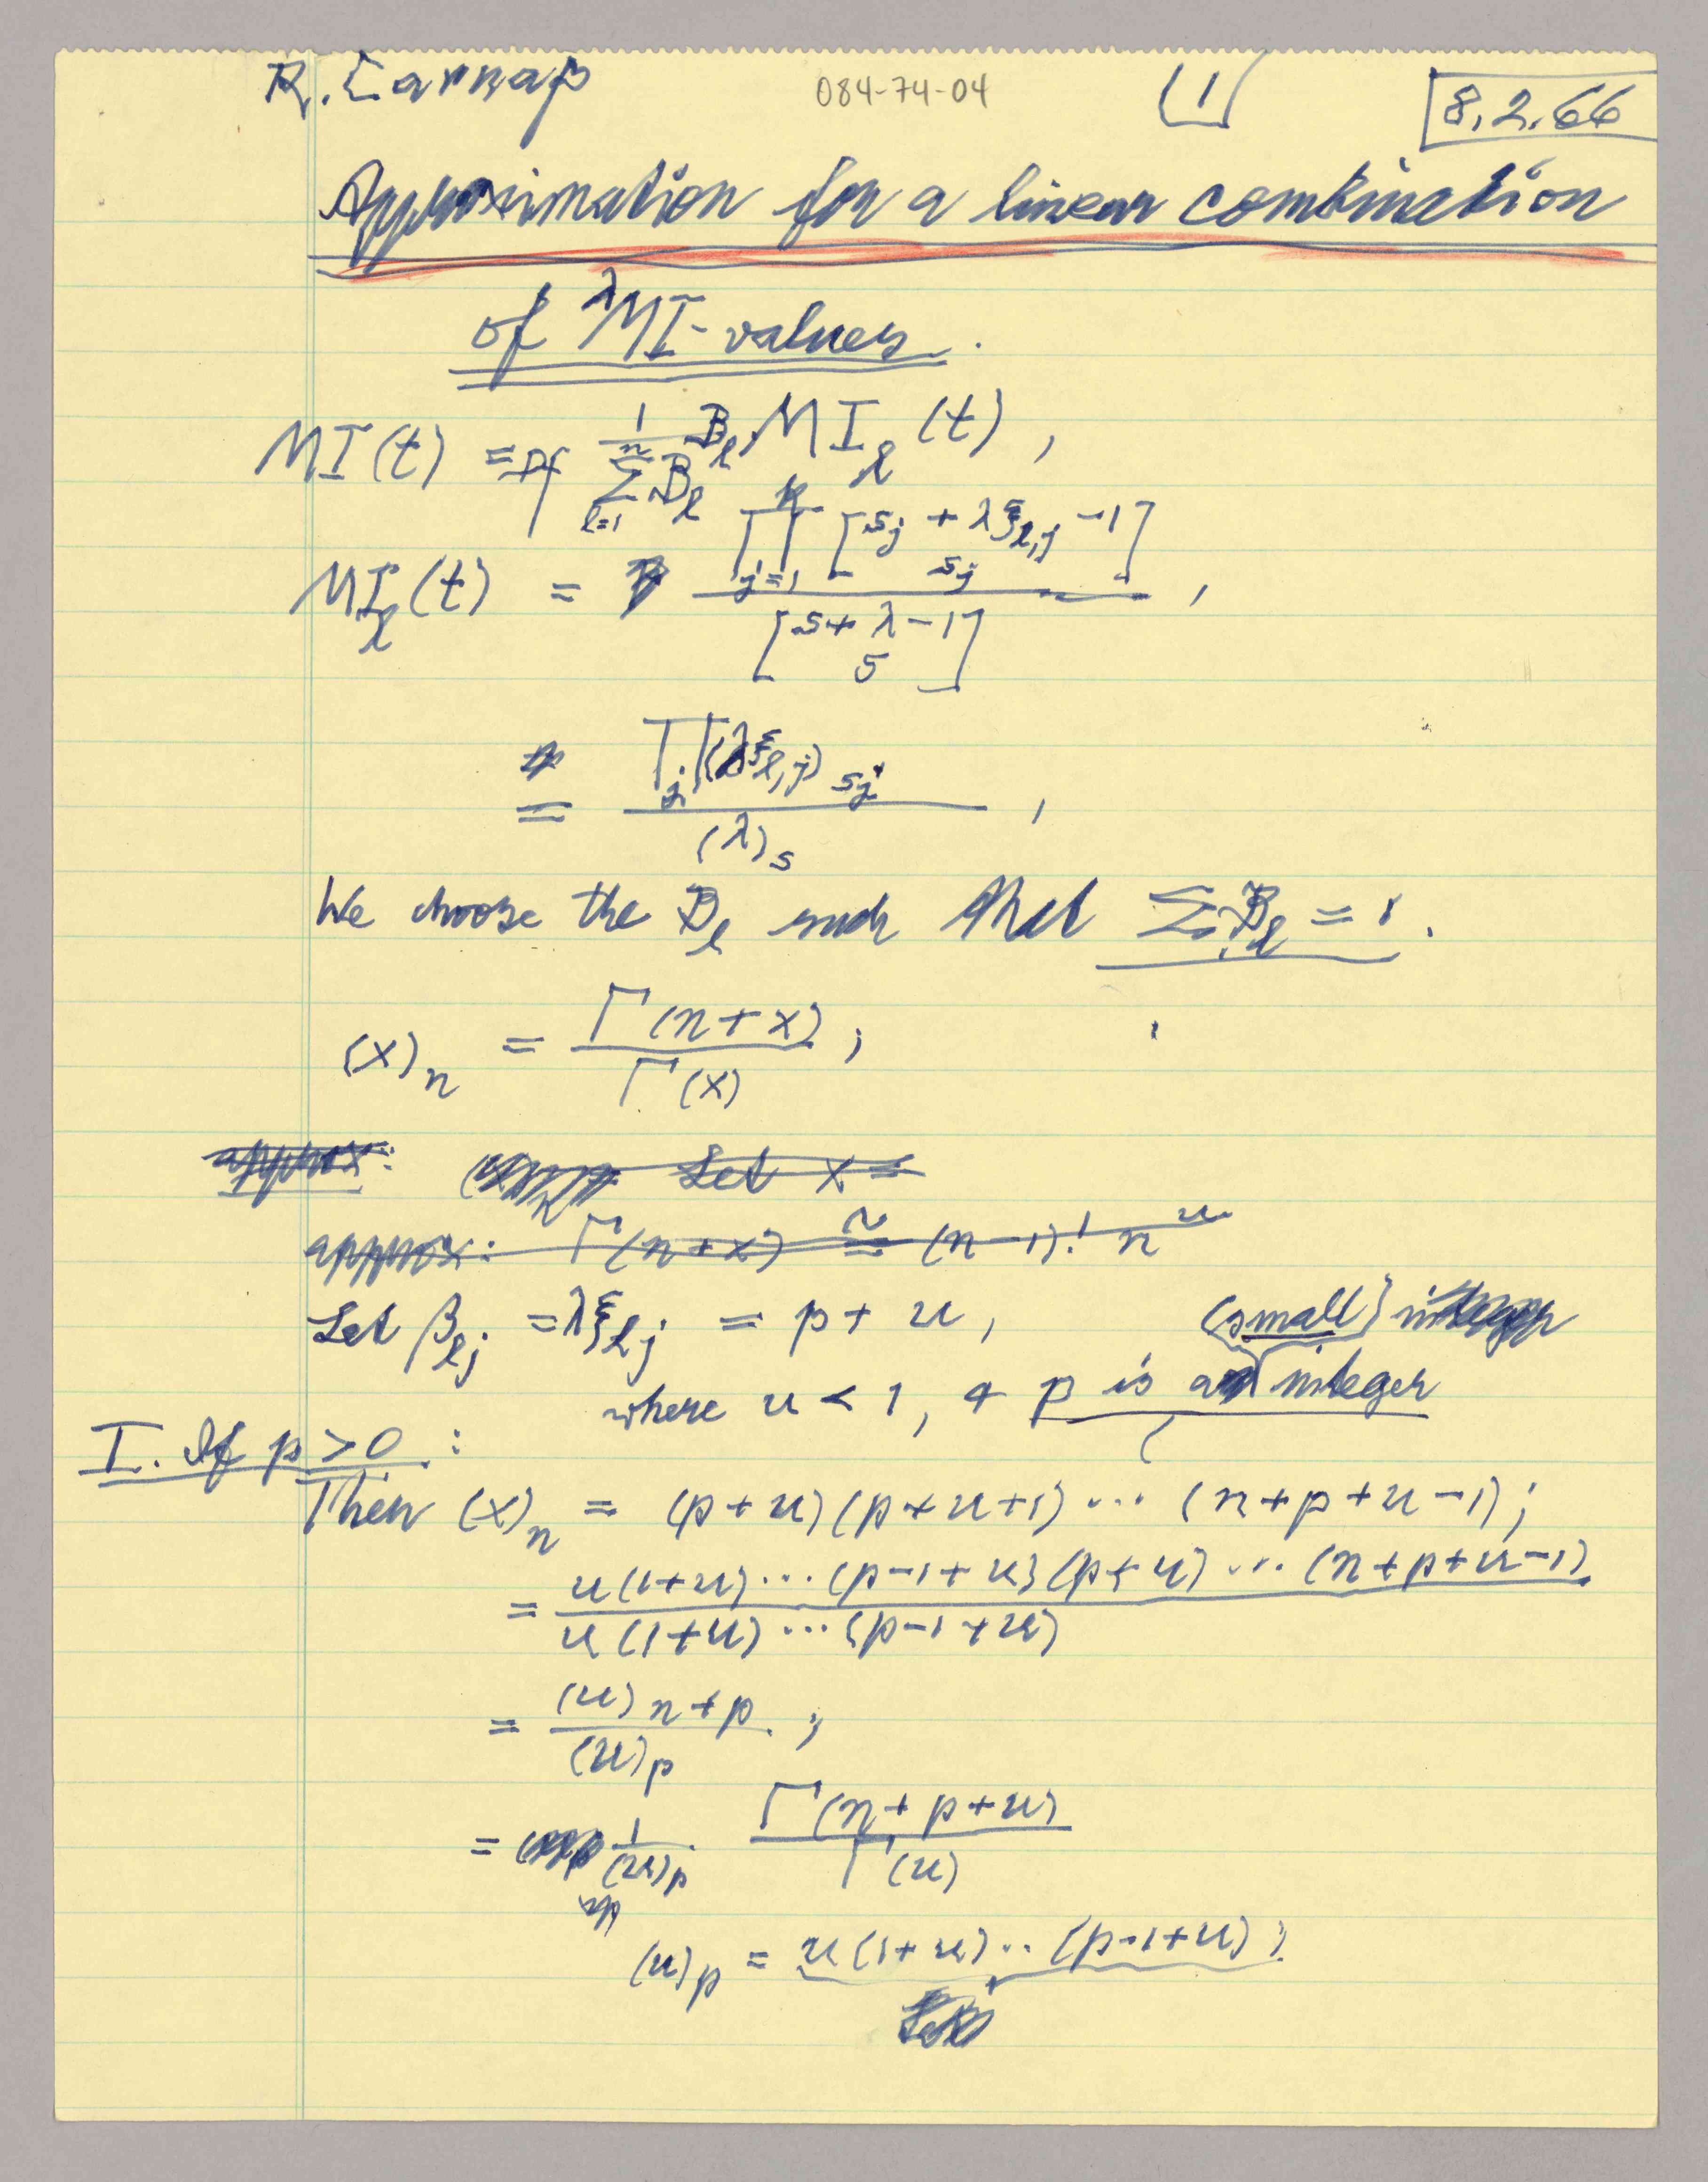 R. Carnap 084-74-04 (1) 8.2.66
Approximation for a linear combination
of λMI-values.
MI(t) =Df 1/(∑_{l=1}^{n} B_l) B_l MI_l(t),
MI_l(t) = ∏_{j=1}^{k} [s_j + λξ_{l,j} − 1 / s_j] / [s + λ − 1 / s],
= ∏_j (λξ_{l,j})_{s_j} / (λ)_s,
We choose the B_l such that ∑B_l = 1.
(x)_n = Γ(n+x) / Γ(x);
approx: Let x =
approx: Γ(n+x) ≅ (n−1)! n^u
Let β_{lj} = λξ_{lj} = p + u, (small) integer
where u < 1, + p is a integer
I. If p > 0:
Then (x)_n = (p+u)(p+u+1) ... (n+p+u−1);
= u(1+u)...(p−1+u)(p+u)...(n+p+u−1) / u(1+u)...(p−1+u)
= (u)_{n+p} / (u)_p;
= 1/(u)_p Γ(n+p+u) / Γ(u)
(u)_p = u(1+u)..(p−1+u);